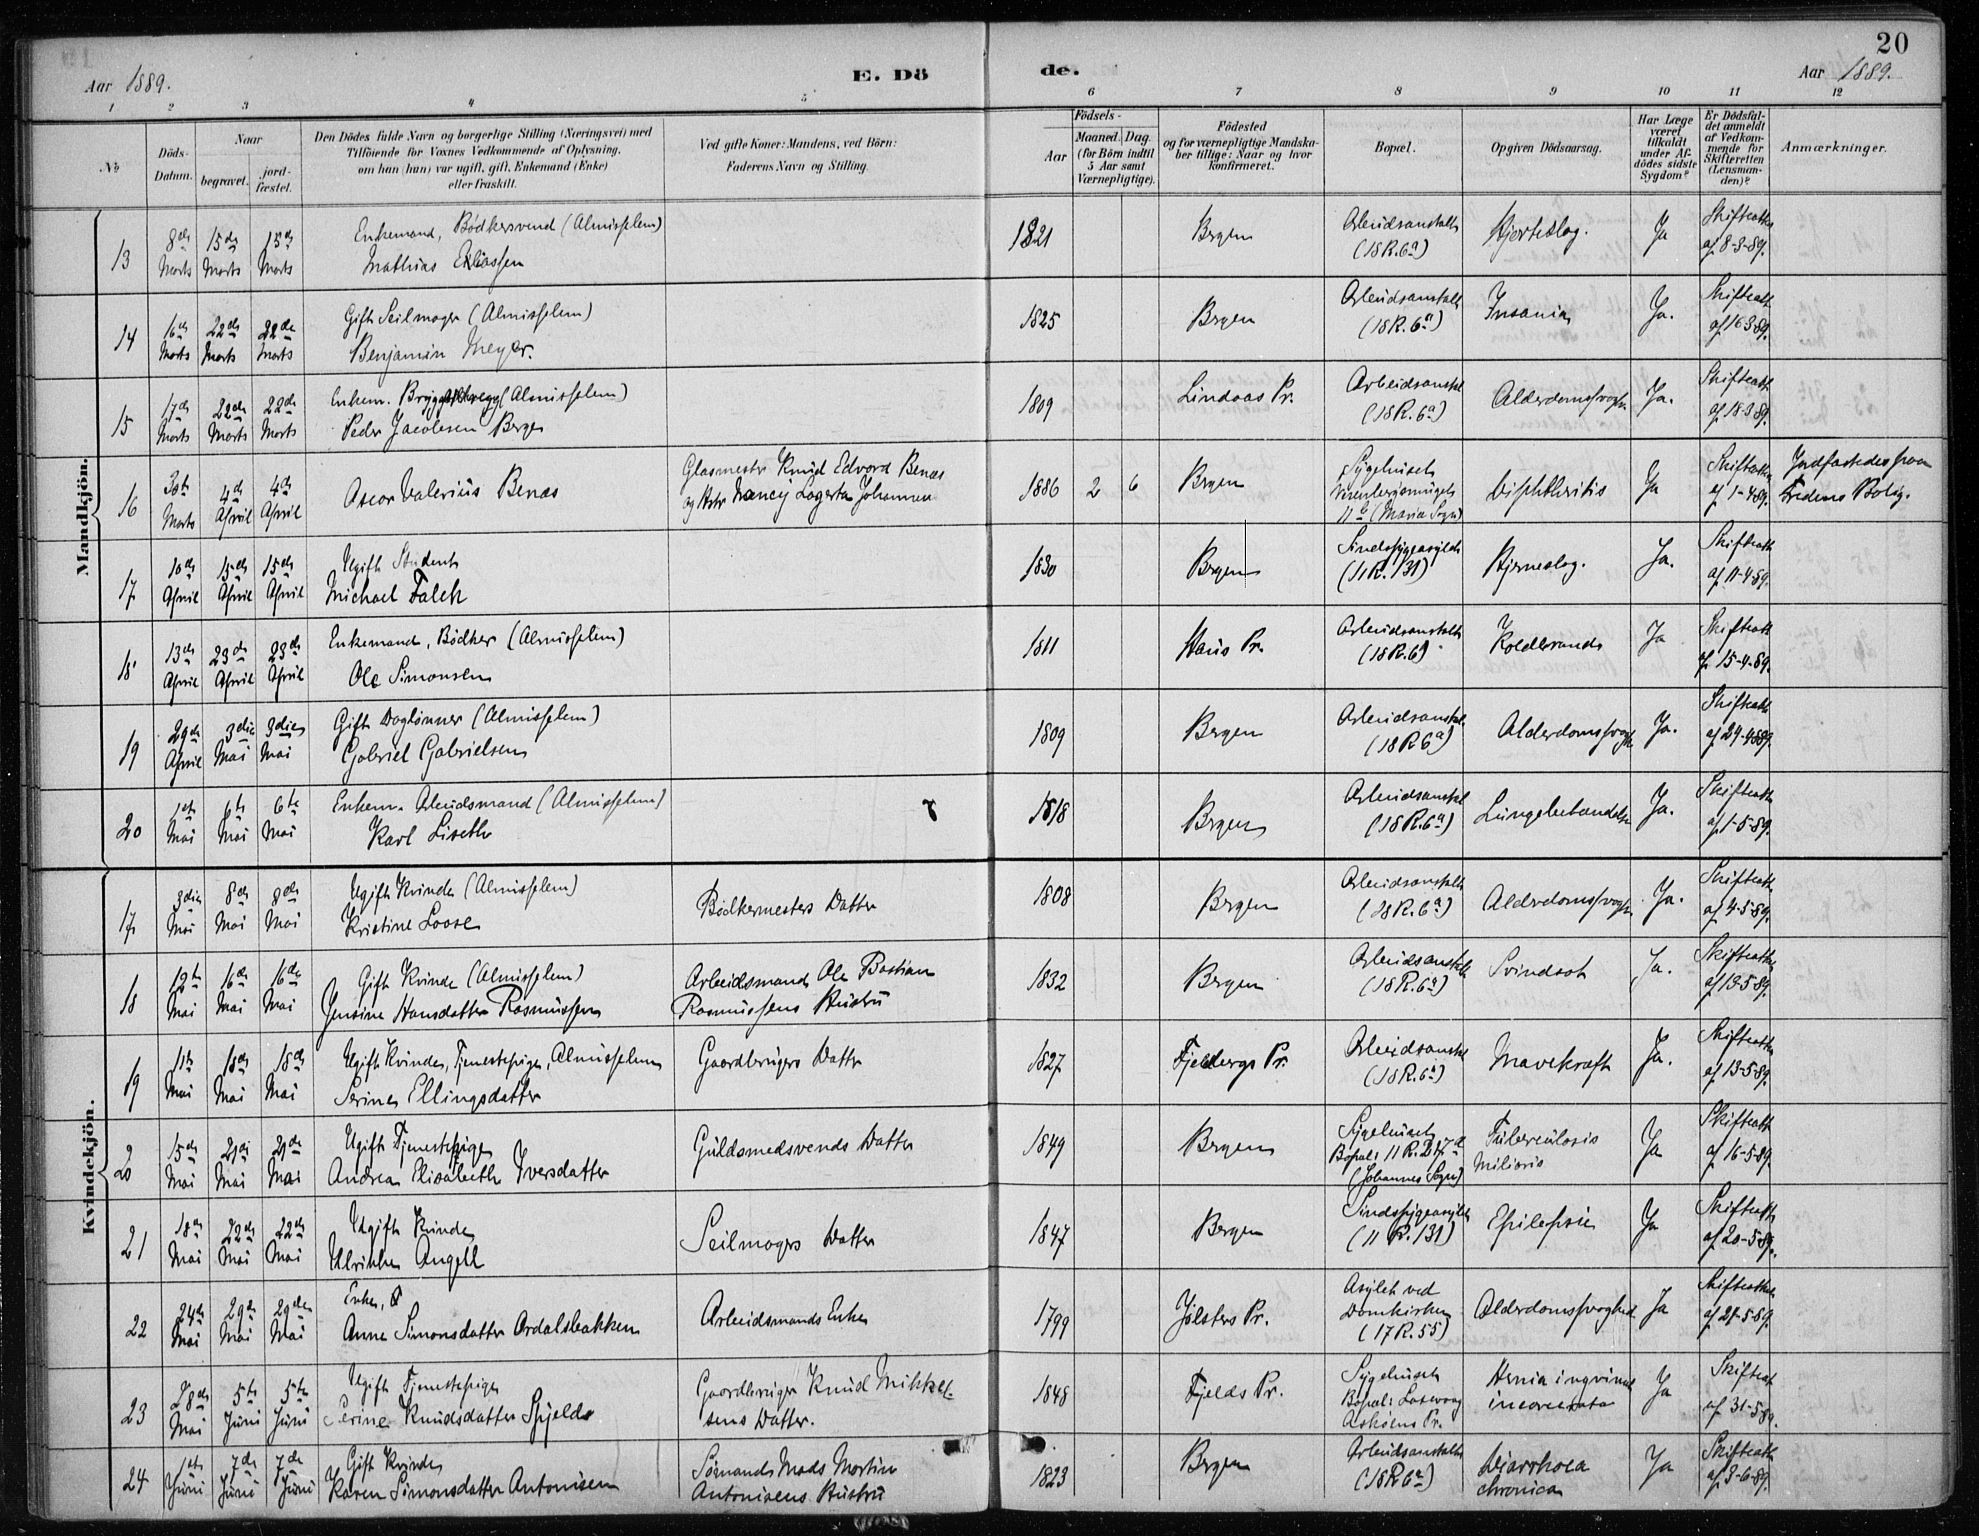 20
Aar 1889.
E. Dö
de.
Aar 1889.
1 2 3 4 5 6 7 8 9 10 11 12
No
Döds-Datum.
Naar
begravet.
jord-fæstet.
Den Dödes fulde Navn og borgerlige Stilling (Næringsvei) med
Tilföiende for Voxnes Vedkommende af Oplysning,
om han (hun) var ugift, gift, Enkemand (Enke)
eller fraskilt.
Ved gifte Koner: Mandens, ved Börn:
Faderens Navn og Stilling.
Födsels-
Aar
Maaned. Dag.
(for Börn indtil
5 Aar samt
Værnepligtige).
Födested
og for værnepligtige Mandska-
ber tillige: Naar og hvor
konfirmeret.
Bopæl.
Opgiven Dödsaarsag.
Har Læge
været
tilkaldt
under Af-
dödes sidste
Sygdom?
Er Dödsfal-
det anmeldt
af Vedkom-
mende for
Skifteretten
(Lensman-
den)?
Anmærkninger.
Mandkjön.
13 8de Marts 15de Marts 15de Marts
Enkemand, Bødkersvend (Almisselem)
Mathias Eliassen
1821 Bergen
Arbeidsanstalten
(18 R. 6a)
Hjerteslag. Ja
Skifteatt.
af 8-3-89.
14 16de Marts 22de Marts 22de Marts
Gift Seilmager (Almisselem)
Benjamin Meyer.
1825 Bergen
Arbeidsanstalt
(18 R. 6a)
Insania Ja.
Skifteatt.
af 16-3-89.
15 17de Marts 22de Marts 22de Marts
Enkem. (Almisselem)
Peder Jacobsen Berge
1809 Lindaas Pr.
Arbeidsanstal
(18 R. 6a)
Alderdomssvagh. Ja.
Skifteatt.
af 18-3-89.
16 30te Marts 4de April 4de April
Oscar Valerius Benas
Glasmester Knud Edvard Benas
og Hstr Nancy Lagertha Johannes
1886 2 6 Bergen
Sygehuset
11 b (Maria Sogn)
Diphtheritis Ja
Skifteatt.
af 1-4-89.
Jordfæstedes fra
Fredens Bolig.
17 10de April 15de April 15de April
Ugift Student
Michael Falck
1830 Bergen
Sindssygeasylet
(11 R. 131)
Hjerneslag. Ja.
Skifteatt.
af 11-4-89.
18 13de April 23de April 23de April
Enkemand, Bødker (Almisselem)
Ole Simonsen
1811 Haus Pr.
Arbeidsanstalt
(18 R. 6a)
Koldbrand Ja
Skifteatt.
af 15-4-89.
19 29de April 3die Mai 3die Mai
Gift Daglønner (Almisselem)
Gabriel Gabrielsen
1809 Bergen
Arbeidsanstal.
(18 R 6a)
Alderdomssvagh. Ja.
Skifteatt.
af 29-4-89.
20 1ste Mai 6te Mai 6te Mai
Enkem. Arbeidsmand (Almisselem)
Karl Liseth
1818 Bergen
Arbeidsanstal
(18 R. 6a)
Lungebetændelse Ja.
Skifteatt.
af 1-5-89.
Kvindekjön.
17 3die Mai 8de Mai 8de Mai
Ugift Kvinde (Almisselem)
Kristine Loose
Bødkermesters Datter
1808 Bergen
Arbeidsanstalt
(18 R. 6a)
Alderdomssvagh. Ja.
Skifteatt.
af 4-5-89.
18 12te Mai 16de Mai 16de Mai
Gift Kvinde (Almisselem)
Jensine Hansdatter Rasmussen
Arbeidsmand Ole Bastian
Rasmussens Hustru
1832 Bergen
Arbeidsanstalt
(18 R. 6a)
Svindsot Ja.
Skifteatt.
af 13-5-89.
19 11te Mai 18de Mai 18de Mai
Ugift Kvinde, Tjenestepige, Almisselem
Serine Ellingsdatter
Gaardbrugers Datter
1827 Fjelbergs Pr.
Arbeidsanstal
(18 R. 6a)
Mavekræft Ja.
Skifteatt.
af 13-5-89.
20 15de Mai 21de Mai 21de Mai
Ugift Tjenestepige
Andrea Elisabeth Iversdatter
Guldsmedsvends Datter
1849 Bergen
Sygehuset
Bopæl: 11 R. 217d
(Johannes Sogn)
Tuberculosis
Miliaris
Ja
Skifteatt.
af 16-5-89.
21 18de Mai 22de Mai 22de Mai
Ugift Kvinde
Ulrikke Angell
Seilmagers Datter
1847 Bergen
Sindssygeasylet
(11 R. 131)
Epilepsie Ja
Skifteatt.
af 20-5-89.
22 24de Mai 29de Mai 29de Mai
Enke,
Anne Simonsdatter Ardalsbakken
Arbeidsmands Enke
1799 Jølsters Pr.
Asylet ved
Domkirken
(17 R. 55)
Alderdomssvaghed Ja
Skifteatt.
af 27-5-89.
23 28de Mai 5te Juni 5te Juni
Ugift Tjenestepige
Serine Knudsdatter Spjeld
Gaardbruger Knud Mikkel-
sens Datter.
1848 Fjelds Pr.
Sygehuset
Bopæl: Laxevaag
Askøens Pr.
Hernia ingvinal
incarcerata
Ja
Skifteatt
af 31-5-89.
24 1ste Juni 7de Juni 7de Juni
Gift Kvinde
Karen Simonsdatter Antonisen
Sømand Mads Martin
Antonisens Hustru
1823 Bergen
Arbeidsanstalt
(18 R 6a)
Diarrhoea
chronica
Ja
Skifteatt.
af 3-6-89.